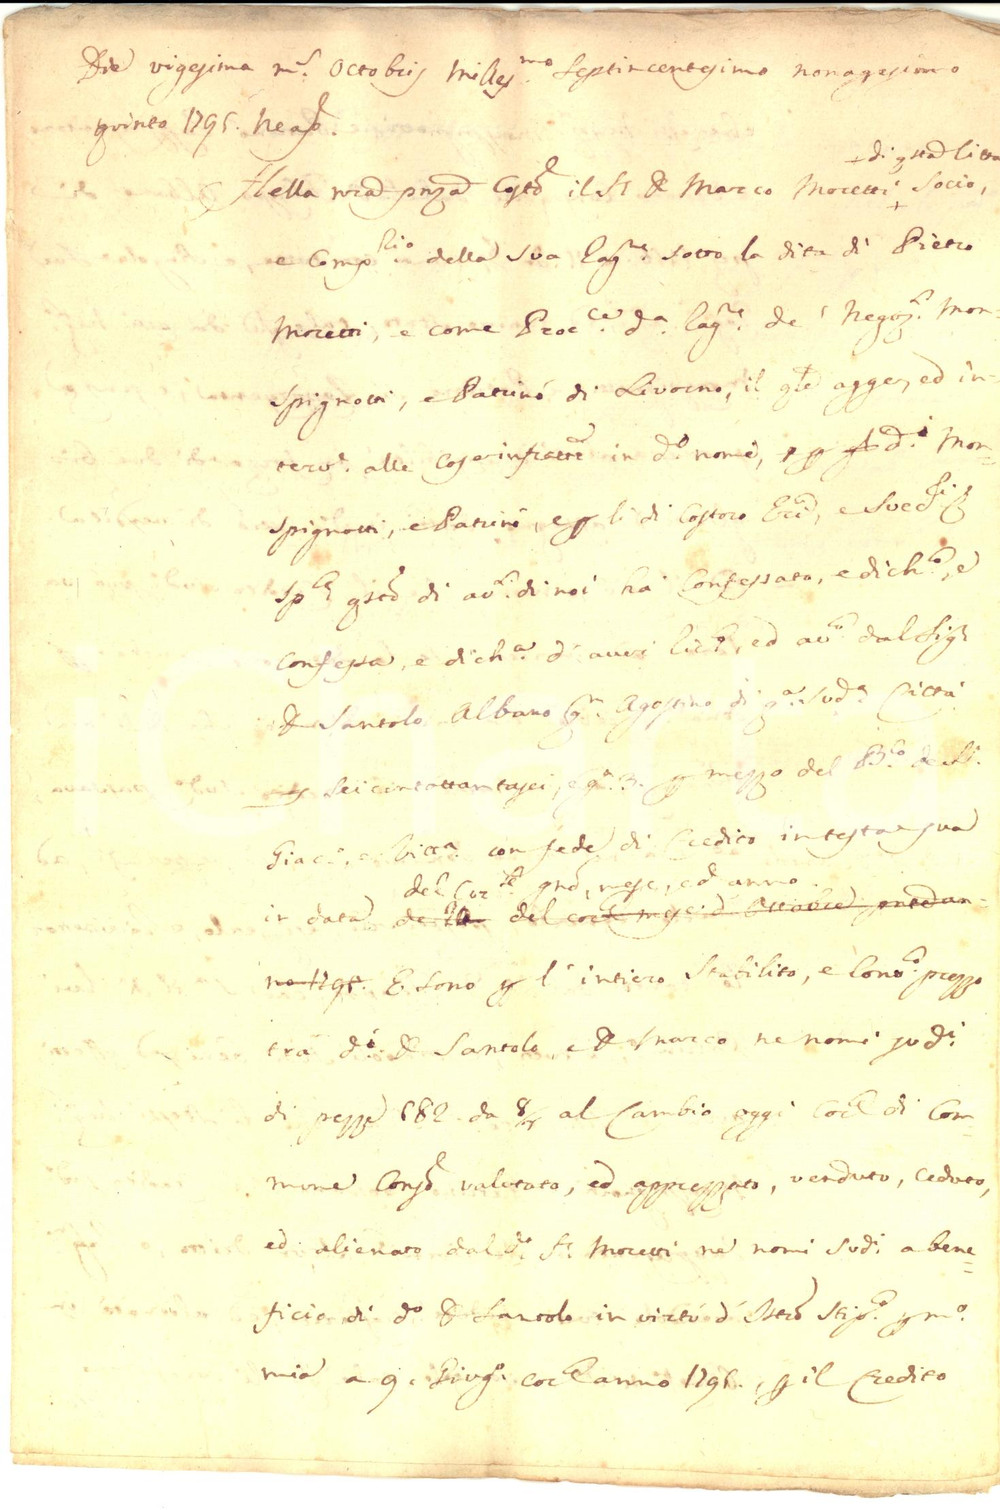 Die vigesima m.s Octobris Milles.mo Septincentesimo nonagesimo
quinto 1795. Neap.
+ di qsta Citta
Nella n̄ra pn̄za Costo il Sr D. Marco Moretti + Socio,
e Comp.rio della sua Rag.ne sotto la dita di Pietro
Moretti, e come Proc.re d.a Rag.ne de' Negoz. Mon=
spignotti, e Patrinó di Livorno, il qle agge, ed in=
terv.e alle cose infratte in d.o nome, e p d.i Mon=
spignotti, e Patrinó, e p li di Costoro Eredi, e Succ.ri
Sp.te qsto di av.ti di noi ha Confessato, e dich.to, e
Confessa, e dich.a d' aver ric.to, ed av.to dal Sig.r
D. Santolo Albano qm Agostino di q.a Sud.a Città
Seicentottantasei, e g.a 3. p mezzo del B.co de S.
Giac.o, e Vitt.a con fede di Credito in testa sua
del Cor.te gno, mese, ed anno.
in data de 20 del cor.te mese d' Ottobre pnte an=
no 1795. E sono p l' intiero stabilito, e Conv.to prezzo
tra d.i D. Santolo, e D. Marco ne nomi sud.i
di pezze 682 da 8/r al Cambio oggi Cor.te di Com=
mune Conso valutato, ed apprezzato, venduto, ceduto,
ed alienato dal d.o Sr Moretti ne nomi sud.i a bene=
ficio di d.o D. Santolo in virtù d' Istro Stip.to p m.o
mia a 9. Giug.o cor.te anno 1795., p il Credito